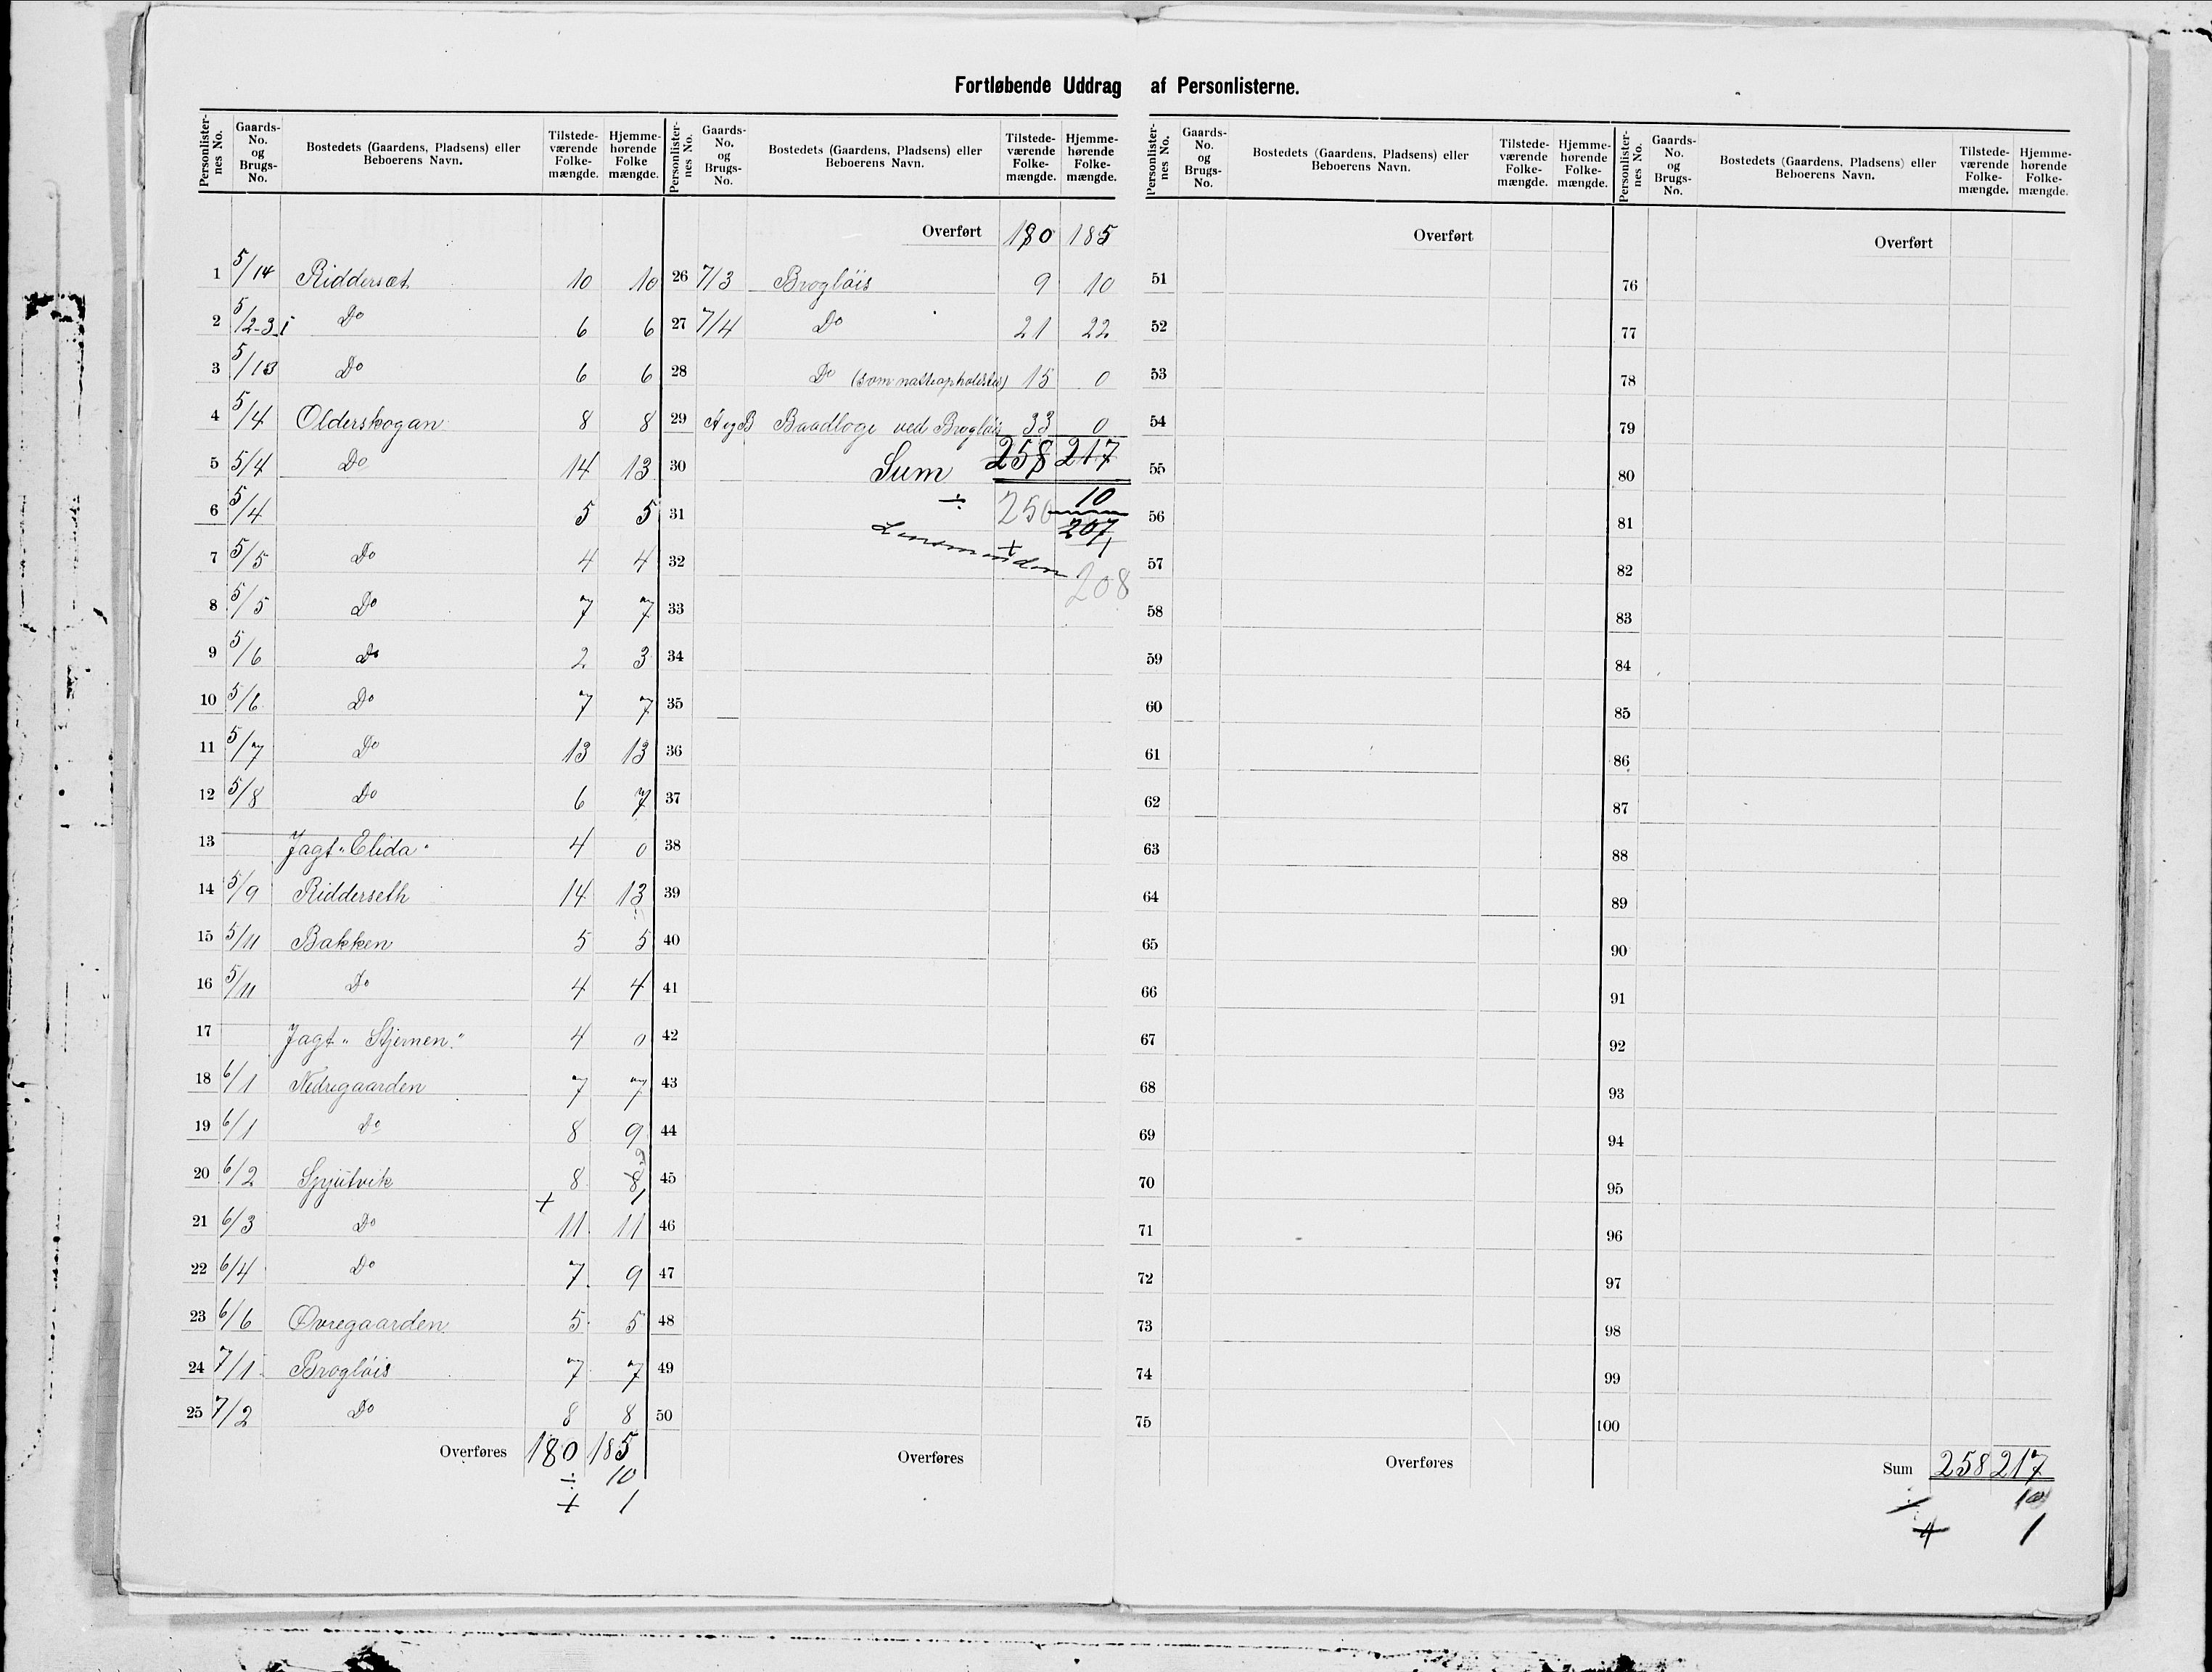 Fortløbende Uddrag af Personlisterne.
Personlister-nes No. Gaards-No. og Brugs-No. Bostedets (Gaardens, Pladsens) eller Beboerens Navn. Tilstede-værende Folke-mængde. Hjemme-hørende Folke mængde.
1 5/14 Riddersæt 10 10
2 5/2-3.1 Do 6 6
3 5/13 Do 6 6
4 5/4 Olderskogan 8 8
5 5/4 Do 14 13
6 5/4 5 5
7 5/5 Do 4 4
8 5/5 Do 7 7
9 5/6 Do 2 3
10 5/6 Do 7 7
11 5/7 Do 13 13
12 5/8 Do 6 7
13 Jagt "Elida" 4 0
14 5/9 Ridderseth 14 13
15 5/11 Bakken 5 5
16 5/11 Do 4 4
17 Jagt "Stjernen." 4 0
18 6/1 Nedregaarden 7 7
19 6/1 Do 8 9
20 6/2 Spjutvik 8 8
+ 1
21 6/3 Do 11 11
22 6/4 Do 7 9
23 6/6 Øvregaarden 5 5
24 7/1 Brogløis 7 7
25 7/2 Do 8 8
Overføres 180 185
÷ 10
+ 1
Personlister-nes No. Gaards-No. og Brugs-No. Bostedets (Gaardens, Pladsens) eller Beboerens Navn. Tilstede-værende Folke-mængde. Hjemme-hørende Folke-mængde.
Overført 180 185
26 7/3 Brogløis 9 10
27 7/4 Do 21 22
28 Do (som 15 0
29 A og B Baadloge ved Brogløis 33 0
30 Sum 258 217
31 ÷ 250 10
207
32 Lensmanden + 1
208
33
34
35
36
37
38
39
40
41
42
43
44
45
46
47
48
49
50
Overføres
Personlister-nes No. Gaards-No. og Brugs-No. Bostedets (Gaardens, Pladsens) eller Beboerens Navn. Tilstede-værende Folke-mængde. Hjemme-hørende Folke-mængde.
Overført
51
52
53
54
55
56
57
58
59
60
61
62
63
64
65
66
67
68
69
70
71
72
73
74
75
Overføres
Personlister-nes No. Gaards-No. og Brugs-No. Bostedets (Gaardens, Pladsens) eller Beboerens Navn. Tilstede-værende Folke-mængde. Hjemme-hørende Folke-mængde.
Overført
76
77
78
79
80
81
82
83
84
85
86
87
88
89
90
91
92
93
94
95
96
97
98
99
100
Sum 258 217
÷ 10
+ 1